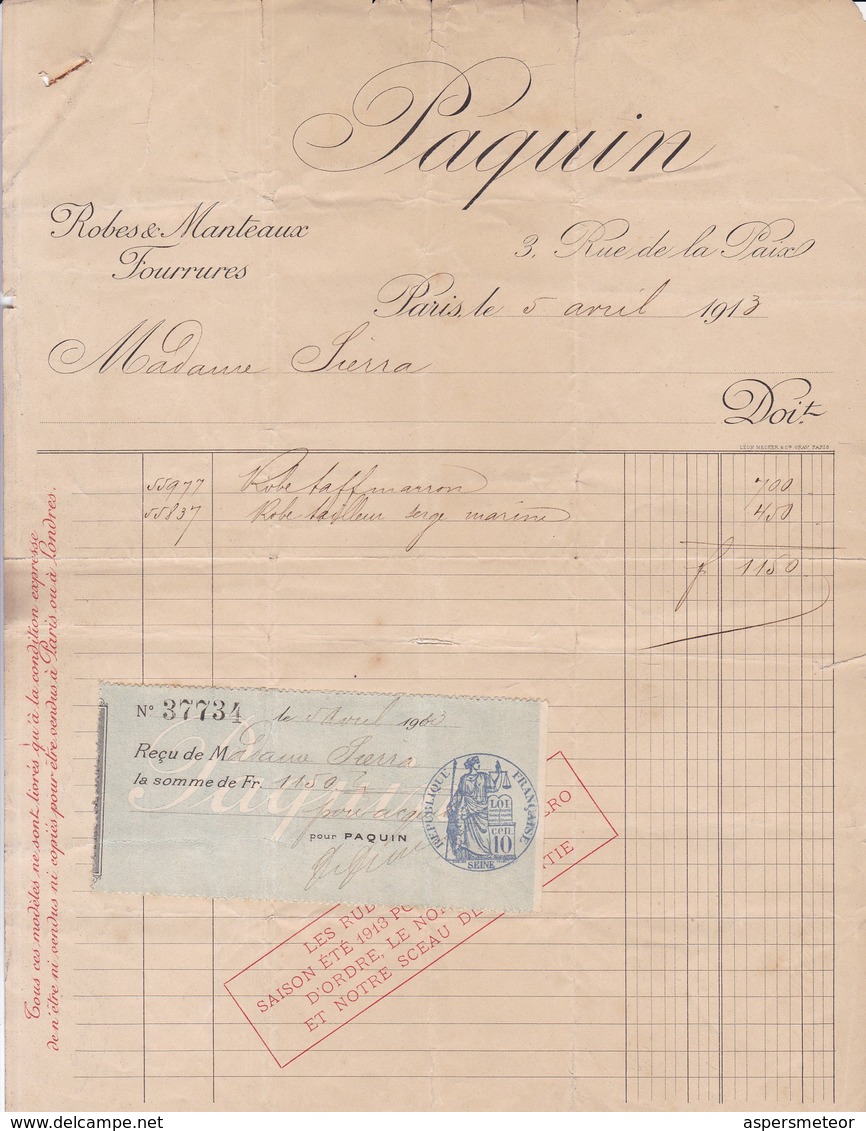 Paquin
Robes & Manteaux
Fourrures
3, Rue de la Paix
Paris, le 5 avril 1913
Madame Sierra
Doit
LÉON HECKER & Cie GRAV. PARIS
55977 Robe taff marron 700
55837 Robe tailleur serge marine 450
f 1150
Tous ces modèles ne sont livrés qu'à la condition expresse
de n'être ni vendus ni copiés pour être vendus à Paris ou à Londres.
No 37734 le 5 Avril 1913
Reçu de Madame Sierra
la somme de Fr. 1150
Paquin
pour acquit
pour PAQUIN
RÉPUBLIQUE FRANÇAISE
LOI
cen.
10
SEINE
LES RU
SAISON ÉTÉ 1913 PO
D'ORDRE, LE NO
ET NOTRE SCEAU DE
delcampe.net
aspersmeteor